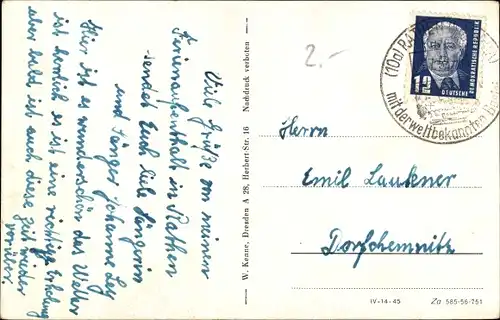 Viele Grüße von meinem
Ferienaufenthalt in Rathen
sendet Euch liebe Sängerin
und Sänger Johanne Ley
Hier ist es wunderschön das Wetter
ist herrlich es ist eine richtige Erholung
aber bald ist auch diese Zeit wieder
vorüber.
W. Kenne, Dresden A 28, Herbert-Str. 16 Nachdruck verboten
2.-
(10a)
mit der weltbekannten
12
DEUTSCHE
DEMOKRATISCHE REPUBLIK
Herrn
Emil Laukner
Dorfchemnitz
IV-14-45 Za 585-56-751